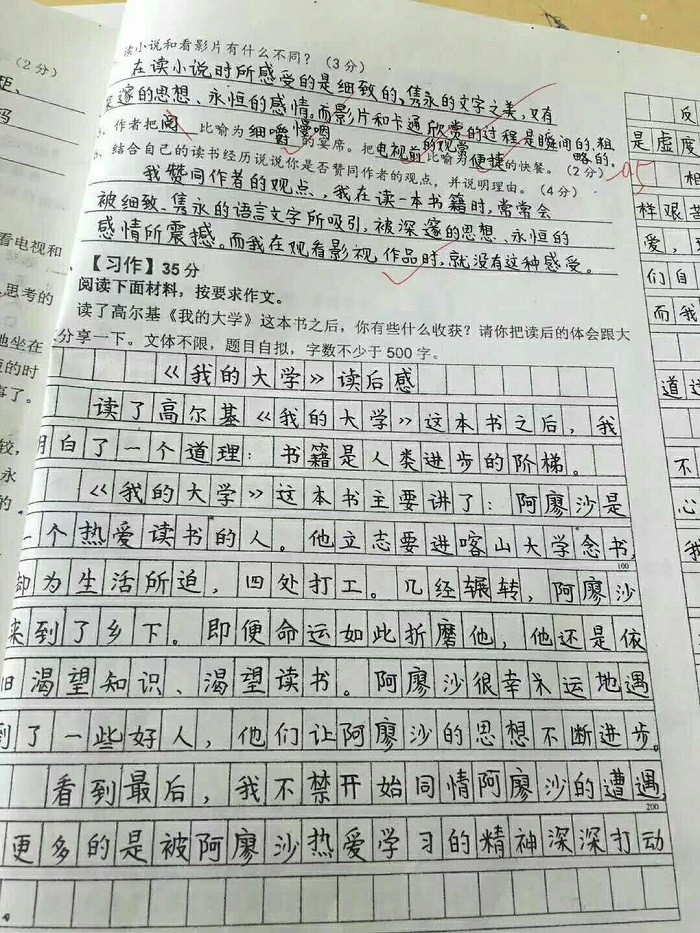 (2分)
读小说和看影片有什么不同？(3分)
在读小说时所感受的是细致的、隽永的文字之美，又有
邃的思想、永恒的感情。而影片和卡通欣赏的过程是瞬间的、粗略的。
5、作者把阅 比喻为细嚼慢咽的宴席。把电视前的观赏比喻为便捷的快餐。(2分)
结合自己的读书经历说说你是否赞同作者的观点，并说明理由。(4分)
我赞同作者的观点，我在读一本书籍时，常常会
被细致、隽永的语言文字所吸引，被深邃的思想、永恒的
感情所震撼。而我在观看影视作品时，就没有这种感受。
【习作】35分
阅读下面材料，按要求作文。
读了高尔基《我的大学》这本书之后，你有些什么收获？请你把读后的体会跟大
分享一下。文体不限，题目自拟，字数不少于500字。
《我的大学》读后感
读了高尔基《我的大学》这本书之后，我
明白了一个道理：书籍是人类进步的阶梯。
《我的大学》这本书主要讲了：阿廖沙是
一个热爱读书的人。他立志要进喀山大学念书，
100
却为生活所迫，四处打工。几经辗转，阿廖沙
来到了乡下。即便命运如此折磨他，他还是依
旧渴望知识、渴望读书。阿廖沙很幸运地遇
到了一些好人，他们让阿廖沙的思想不断进步。
看到最后，我不禁开始同情阿廖沙的遭遇，
200
更多的是被阿廖沙热爱学习的精神深深打动
。
看电视和
思考的
地坐在
的时
事了。
较，
永
的。
反
是虚度
相
样艰苦
爱，
们自
而我
道这
不
心
我